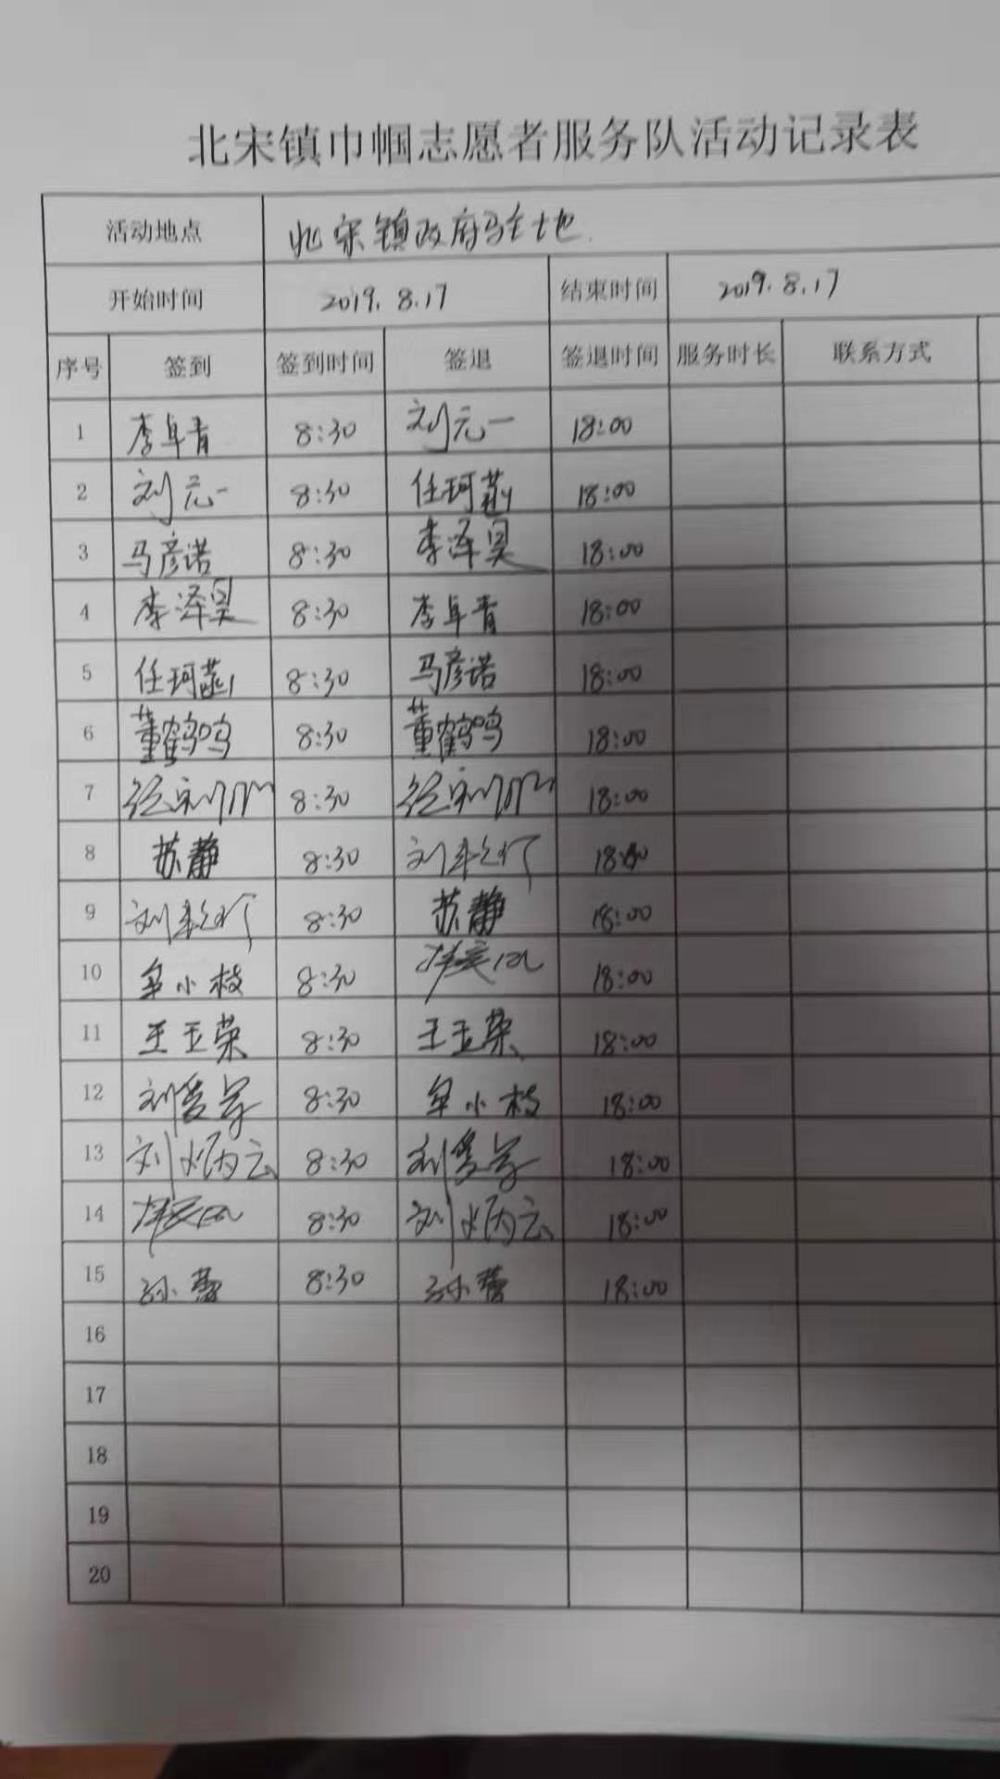 北宋镇巾帼志愿者服务队活动记录表
活动地点 北宋镇政府驻地
开始时间 2019.8.17 结束时间 2019.8.17
序号 签到 签到时间 签退 签退时间 服务时长 联系方式
1 李卓青 8:30 刘元一 18:00
2 刘元一 8:30 任珂 18:00
3 马彦诺 8:30 李泽昊 18:00
4 李泽昊 8:30 李卓青 18:00
5 任珂 8:30 马彦诺 18:00
6 董鹤鸣 8:30 董鹤鸣 18:00
7 8:30 18:00
8 苏静 8:30 刘 18:00
9 刘 8:30 苏静 18:00
10 牟小枝 8:30 18:00
11 王玉荣 8:30 王玉荣 18:00
12 刘 8:30 牟小枝 18:00
13 刘炳云 8:30 刘 18:00
14 8:30 刘炳云 18:00
15 孙蕾 8:30 孙蕾 18:00
16
17
18
19
20